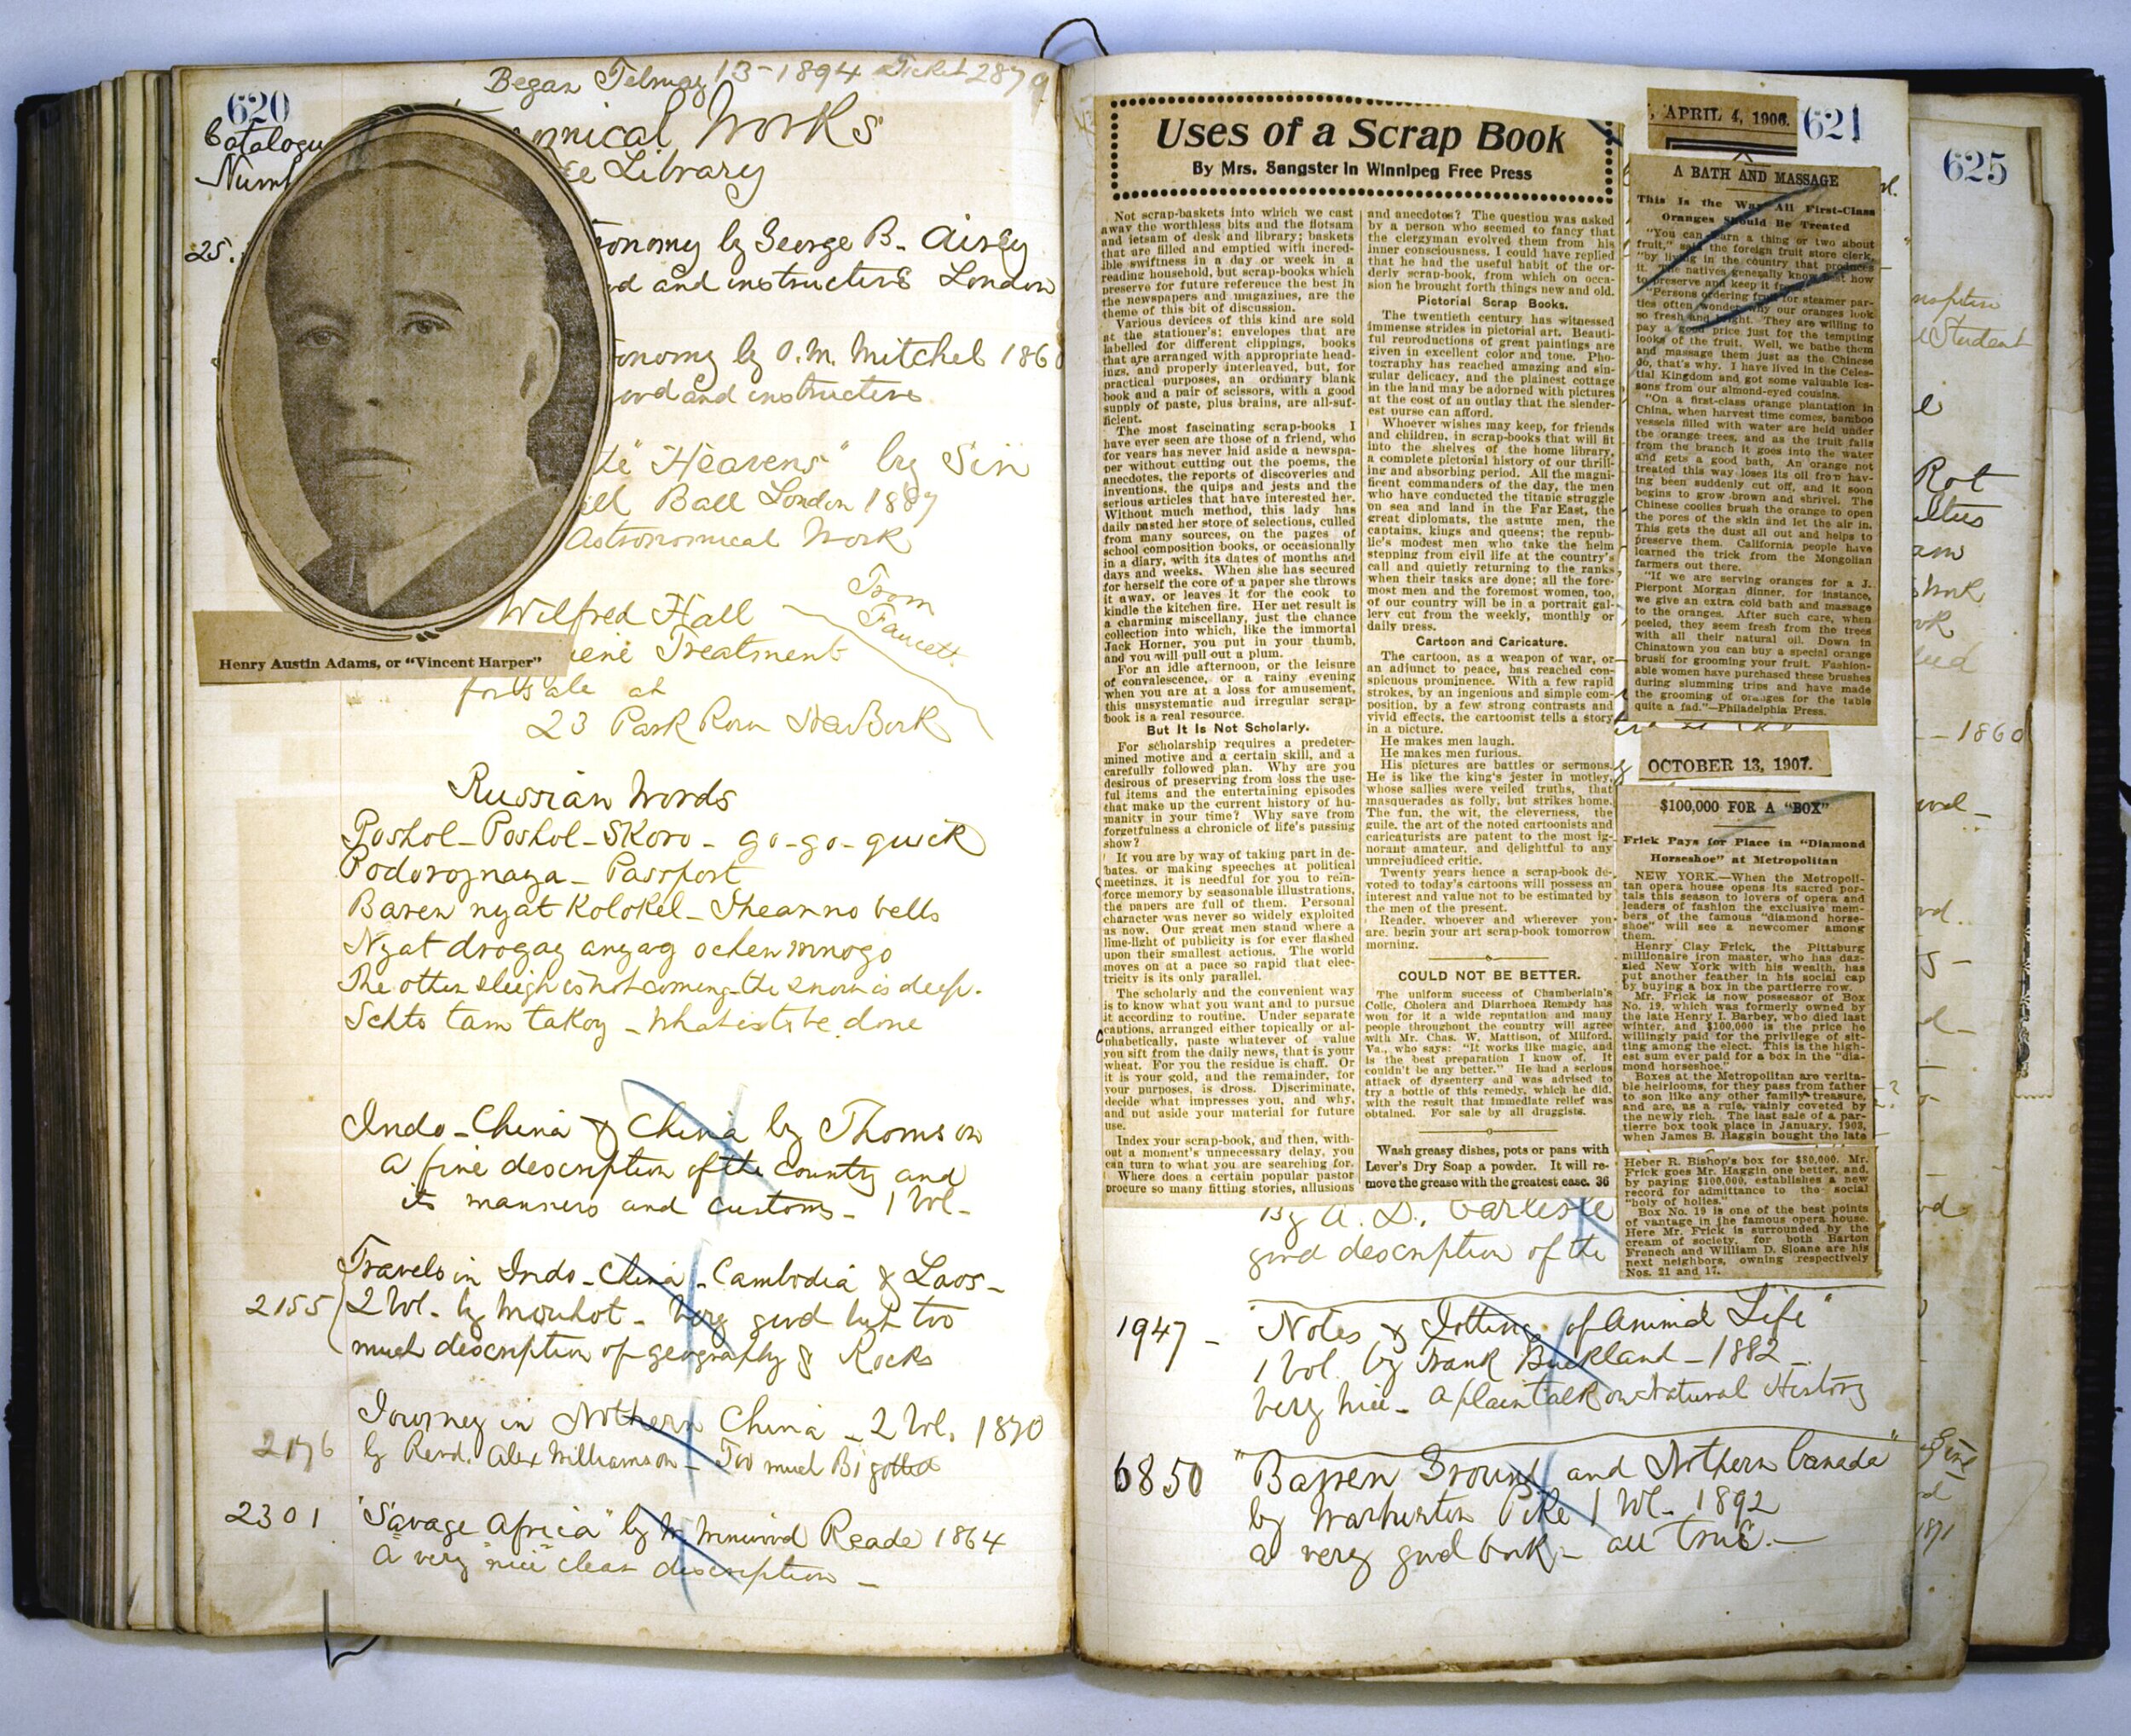 Began 13-1894 Ticket 2879
620
Works
Library
25.
by George B. Airey
and instructive London
by O.M. Mitchel 186
and instructive
"Heavens" by
Ball London 1887
Astronomical Work
From
Faucett.
Wilfred Hall
Treatment
for sale at
23 Park Row
Henry Austin Adams, or "Vincent Harper"
Russian Words
Poshol-Poshol-Skoro - go-go-quick
Podorojnaya - Passport
Baren nyat Kolokel - no bells
Nyat ochen mnogo
The other sleigh is not coming - the snow is deep.
Schto tam takoy - What is to be done
Indo-China & China by Thomson
A fine description of the country and
its manners and customs - 1 Vol-
Travels in Indo-China - Cambodia & Laos -
2155 2 Vol- by Mouhot - Very good but too
much description of geography & Rocks
Journey in Nothern China - 2 Vol. 1870
2176 by Revd. Alex Williamson - Too much Bigotted
2301 "Savage Africa" by W. Winwood Reade 1864
A very "nice" clear description -
Uses of a Scrap Book
By Mrs. Sangster in Winnipeg Free Press
Not scrap-baskets into which we cast
away the worthless bits and the flotsam
and jetsam of desk and library; baskets
that are filled and emptied with incred-
ible swiftness in a day or week in a
reading household, but scrap-books which
preserve for future reference the best in
the newspapers and magazines, are the
theme of this bit of discussion.
Various devices of this kind are sold
at the stationer's; envelopes that are
labelled for different clippings, books
that are arranged with appropriate head-
ings, and properly interleaved, but, for
practical purposes, an ordinary blank
book and a pair of scissors, with a good
supply of paste, plus brains, are all-suf-
ficient.
The most fascinating scrap-books I
have ever seen are those of a friend, who
for years has never laid aside a newspa-
per without cutting out the poems, the
anecdotes, the reports of discoveries and
inventions, the quips and jests and the
serious articles that have interested her.
Without much method, this lady has
daily pasted her store of selections, culled
from many sources, on the pages of
school composition books, or occasionally
in a diary, with its dates of months and
days and weeks. When she has secured
for herself the core of a paper she throws
it away, or leaves it for the cook to
kindle the kitchen fire. Her net result is
a charming miscellany, just the chance
collection into which, like the immortal
Jack Horner, you put in your thumb,
and you will pull out a plum.
For an idle afternoon, or the leisure
of convalescence, or a rainy evening
when you are at a loss for amusement,
this unsystematic and irregular scrap-
book is a real resource.
But It Is Not Scholarly.
For scholarship requires a predeter-
mined motive and a certain skill, and a
carefully followed plan. Why are you
desirous of preserving from loss the use-
ful items and the entertaining episodes
that make up the current history of hu-
manity in your time? Why save from
forgetfulness a chronicle of life's passing
show?
If you are by way of taking part in de-
bates, or making speeches at political
meetings, it is needful for you to rein-
force memory by seasonable illustrations,
the papers are full of them. Personal
character was never so widely exploited
as now. Our great men stand where a
lime-light of publicity is for ever flashed
upon their smallest actions. The world
moves on at a pace so rapid that elec-
tricity is its only parallel.
The scholarly and the convenient way
is to know what you want and to pursue
it according to routine. Under separate
cautions, arranged either topically or al-
phabetically, paste whatever of value
you sift from the daily news, that is your
wheat. For you the residue is chaff. Or
it is your gold, and the remainder, for
your purposes, is dross. Discriminate,
decide what impresses you, and why,
and put aside your material for future
use.
Index your scrap-book, and then, with-
out a moment's unnecessary delay, you
can turn to what you are searching for.
Where does a certain popular pastor
procure so many fitting stories, allusions
and anecdotes? The question was asked
by a person who seemed to fancy that
the clergyman evolved them from his
inner consciousness. I could have replied
that he had the useful habit of the or-
derly scrap-book, from which on occa-
sion he brought forth things new and old.
Pictorial Scrap Books.
The twentieth century has witnessed
immense strides in pictorial art. Beauti-
ful reproductions of great paintings are
given in excellent color and tone. Pho-
tography has reached amazing and sin-
gular delicacy, and the plainest cottage
in the land may be adorned with pictures
at the cost of an outlay that the slender-
est purse can afford.
Whoever wishes may keep, for friends
and children, in scrap-books that will fit
into the shelves of the home library,
a complete pictorial history of our thrill-
ing and absorbing period. All the magni-
ficent commanders of the day, the men
who have conducted the titanic struggle
on sea and land in the Far East, the
great diplomats, the astute men, the
captains, kings and queens; the repub-
lic's modest men who take the helm
stepping from civil life at the country's
call and quietly returning to the ranks
when their tasks are done; all the fore-
most men and the foremost women, too,
of our country will be in a portrait gal-
lery cut from the weekly, monthly or
daily press.
Cartoon and Caricature.
The cartoon, as a weapon of war, or
an adjunct to peace, has reached con-
spicuous prominence. With a few rapid
strokes, by an ingenious and simple com-
position, by a few strong contrasts and
vivid effects, the cartoonist tells a story
in a picture.
He makes men laugh.
He makes men furious.
His pictures are battles or sermons.
He is like the king's jester in motley,
whose sallies were veiled truths, that
masquerades as folly, but strikes home.
The fun, the wit, the cleverness, the
guile, the art of the noted cartoonists and
caricaturists are patent to the most ig-
norant amateur, and delightful to any
unprejudiced critic.
Twenty years hence a scrap-book de-
voted to today's cartoons will possess an
interest and value not to be estimated by
the men of the present.
Reader, whoever and wherever you
are, begin your art scrap-book tomorrow
morning.
COULD NOT BE BETTER.
The uniform success of Chamberlain's
Colic, Cholera and Diarrhoea Remedy has
won for it a wide reputation and many
people throughout the country will agree
with Mr. Chas. W. Mattison, of Milford,
Va., who says: "It works like magic, and
is the best preparation I know of. It
couldn't be any better." He had a serious
attack of dysentery and was advised to
try a bottle of this remedy, which he did,
with the result that immediate relief was
obtained. For sale by all druggists.
Wash greasy dishes, pots or pans with
Lever's Dry Soap a powder. It will re-
move the grease with the greatest ease. 36
, APRIL 4, 1906.
621
A BATH AND MASSAGE
This Is the Way All First-Class
Oranges Should Be Treated
"You can learn a thing or two about
fruit," said the foreign fruit store clerk,
"by living in the country that produces
it. The natives generally know best how
to preserve and keep it
"Persons ordering fruit for steamer par-
ties often wonder why our oranges look
so fresh and bright. They are willing to
pay a good price just for the tempting
looks of the fruit. Well, we bathe them
and massage them just as the Chinese
do, that's why. I have lived in the Celes-
tial Kingdom and got some valuable les-
sons from our almond-eyed cousins.
"On a first-class orange plantation in
China, when harvest time comes, bamboo
vessels filled with water are held under
the orange trees, and as the fruit falls
from the branch it goes into the water
and gets a good bath. An orange not
treated this way loses its oil from hav-
ing been suddenly cut off, and it soon
begins to grow brown and shrivel. The
Chinese coolies brush the orange to open
the pores of the skin and let the air in.
This gets the dust all out and helps to
preserve them. California people have
learned the trick from the Mongolian
farmers out there.
"If we are serving oranges for a J.
Pierpont Morgan dinner, for instance,
we give an extra cold bath and massage
to the oranges. After such care, when
peeled, they seem fresh from the trees
with all their natural oil. Down in
Chinatown you can buy a special orange
brush for grooming your fruit. Fashion-
able women have purchased these brushes
during slumming trips and have made
the grooming of oranges for the table
quite a fad."—Philadelphia Press.
OCTOBER 13, 1907.
$100,000 FOR A "BOX"
Frick Pays for Place in "Diamond
Horseshoe" at Metropolitan
NEW YORK.—When the Metropoli-
tan opera house opens its sacred por-
tals this season to lovers of opera and
leaders of fashion the exclusive mem-
bers of the famous "diamond horse-
shoe" will see a newcomer among
them.
Henry Clay Frick, the Pittsburg
millionaire iron master, who has daz-
zled New York with his wealth, has
put another feather in his social cap
by buying a box in the partierre row.
Mr. Frick is now possessor of Box
No. 19, which was formerly owned by
the late Henry I. Barbey, who died last
winter, and $100,000 is the price he
willingly paid for the privilege of sit-
ting among the elect. This is the high-
est sum ever paid for a box in the "dia-
mond horseshoe."
Boxes at the Metropolitan are verita-
ble heirlooms, for they pass from father
to son like any other family treasure,
and are, as a rule, vainly coveted by
the newly rich. The last sale of a par-
tierre box took place in January, 1903,
when James B. Haggin bought the late
Heber R. Bishop's box for $80,000. Mr.
Frick goes Mr. Haggin one better, and,
by paying $100,000, establishes a new
record for admittance to the social
"holy of holies."
Box No. 19 is one of the best points
of vantage in the famous opera house.
Here Mr. Frick is surrounded by the
cream of society, for both Barton
Frenech and William D. Sloane are his
next neighbors, owning respectively
Nos. 21 and 17.
By A. D. Carlisle
good description of the
1947 - "Notes & Jottings of Animal Life"
1 Vol. by Frank Buckland - 1882 -
Very nice - A plain talk on Natural History
6850 "Barren Ground and Nothern Canada"
by Warburton Pike 1 Vol - 1892
a very good book - all true. -
625
Student
Rot
- 1860
1871